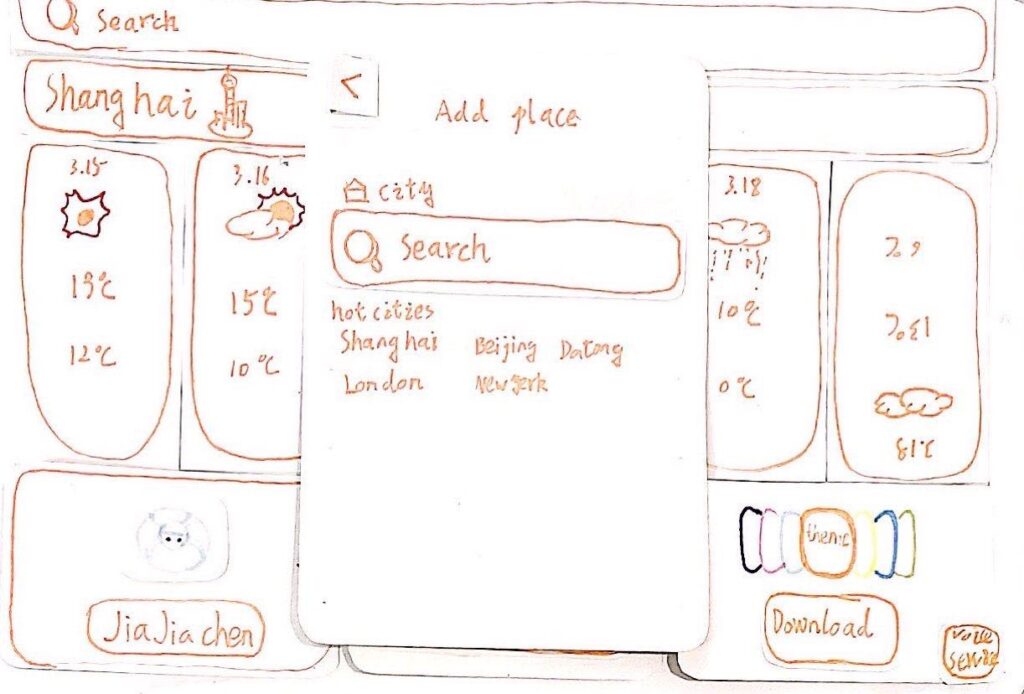 Search
Shanghai
3.15
19℃
12℃
3.16
15℃
10℃
<
Add place
city
Search
hot cities
Shanghai Beijing Datong
London Newyerk
3.18
10℃
0℃
JiaJia chen
theme
Download
voice
service